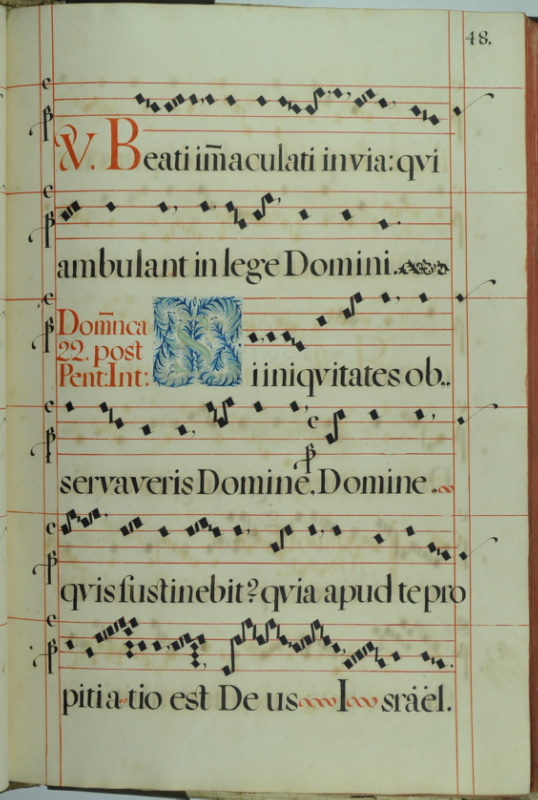 48.
V. Beati im̄aculati in via: qvi
ambulant in lege Domini.
Dom̄nca
22. post
Pent: Int:
Si iniqvitates ob..
servaveris Domine. Domine.
qvis sustinebit? qvia apud te pro
pitiatio est De us Israël.